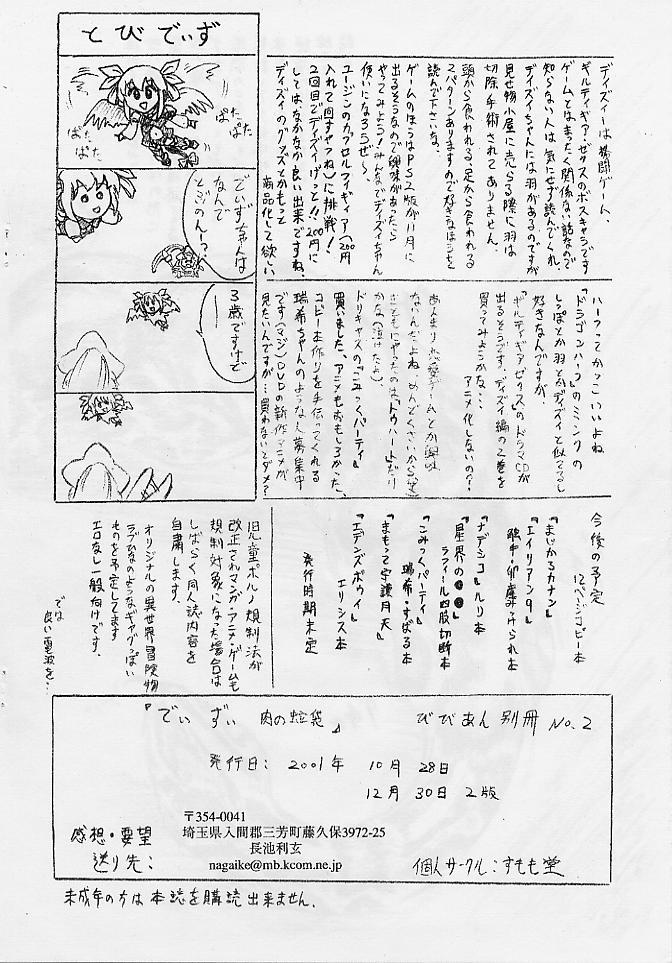 とびでぃず
ぱた
ぱた
ぱた
ぱた
でぃずちゃんは
なんで
とぶのん!?
3歳ですけど
ディズィーは格闘ゲーム、
ギルティギア・ゼクスのボスキャラです
ゲームとはまったく関係ない話なので
知らない人は気にせず読んでくれ。
ディズィちゃんには羽があるのですが
見せ物小屋に売らる際に羽は
切除手術されてありません。
頭から食われる、足から食われる
2パターンありますので好きなほうを
読んで下さいな。
ゲームのほうはPS2版が11月に
出るそうなので興味があったら
やってみよう!みんなでディズィちゃん
使いになろうぜ〜
ユージンのカプセルフィギュア(200円
入れて回すやつね)に挑戦!
2回目でディズィげっと!!200円に
してはなかなか良い出来ですね。
ディズィのグッズとかもっと
商品化して欲しい。
ハーフってかっこいいよね
『ドラゴンハーフ』のミンクの
しっぽとか羽とかディズィと似てるし
好きなんですが、
『ギルティギアゼクス』のドラマCDが
出るそうです。ディズィ編の2巻を
買ってみようかな・・・
アニメ化しないの?
あんまり恋愛ゲームとか興味
ないんだよね。めんどくさいから
まともにやったのはトゥハートだけ
かな(泣けたよ)
ドリキャスの『こみっくパーティ』
買いました、アニメもおもしろかった。
コピー本作りを手伝ってくれる
瑞希ちゃんのような人募集中
です(マジ)DVDの新作アニメが
見たいんですが…買わないとダメ?
今後の予定
12ページコピー本
『まじかるカナン』
『エイリアン9』
『ナデシコ』ルリ本
『星界の●●』
ラフィール四肢切断本
『こみっくパーティ』
瑞希・すばる本
『まもって守護月天』
『エデンズボゥイ』
エリシス本
発行時期未定
児童ポルノ規制法が
改正されマンガ・アニメ・ゲームも
規制対象になった場合は
しばらく同人誌内容を
自粛します。
オリジナルの異世界冒険物
ラブひなのようなギャグっぽい
ものを予定してます
エロなし一般向けです。
では
良い電波を…
『でぃずぃ 肉の螇袋』 びびあん別冊 No.2
発行日: 2001年 10月 28日
12月 30日 2版
〒354-0041
感想・要望 埼玉県入間郡三芳町藤久保3972-25
長池利玄
送り先: nagaike@mb.kcom.ne.jp 個人サークル:すもも堂
未成年の方は本誌を購読出来ません.